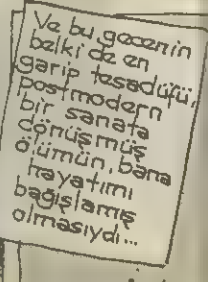 Ve bu gecenin
belki de en
garip tesadüfü,
postmodern
bir sanata
dönüşmüş
ölümün, bana
hayatımı
bağışlamış
olmasıydı...